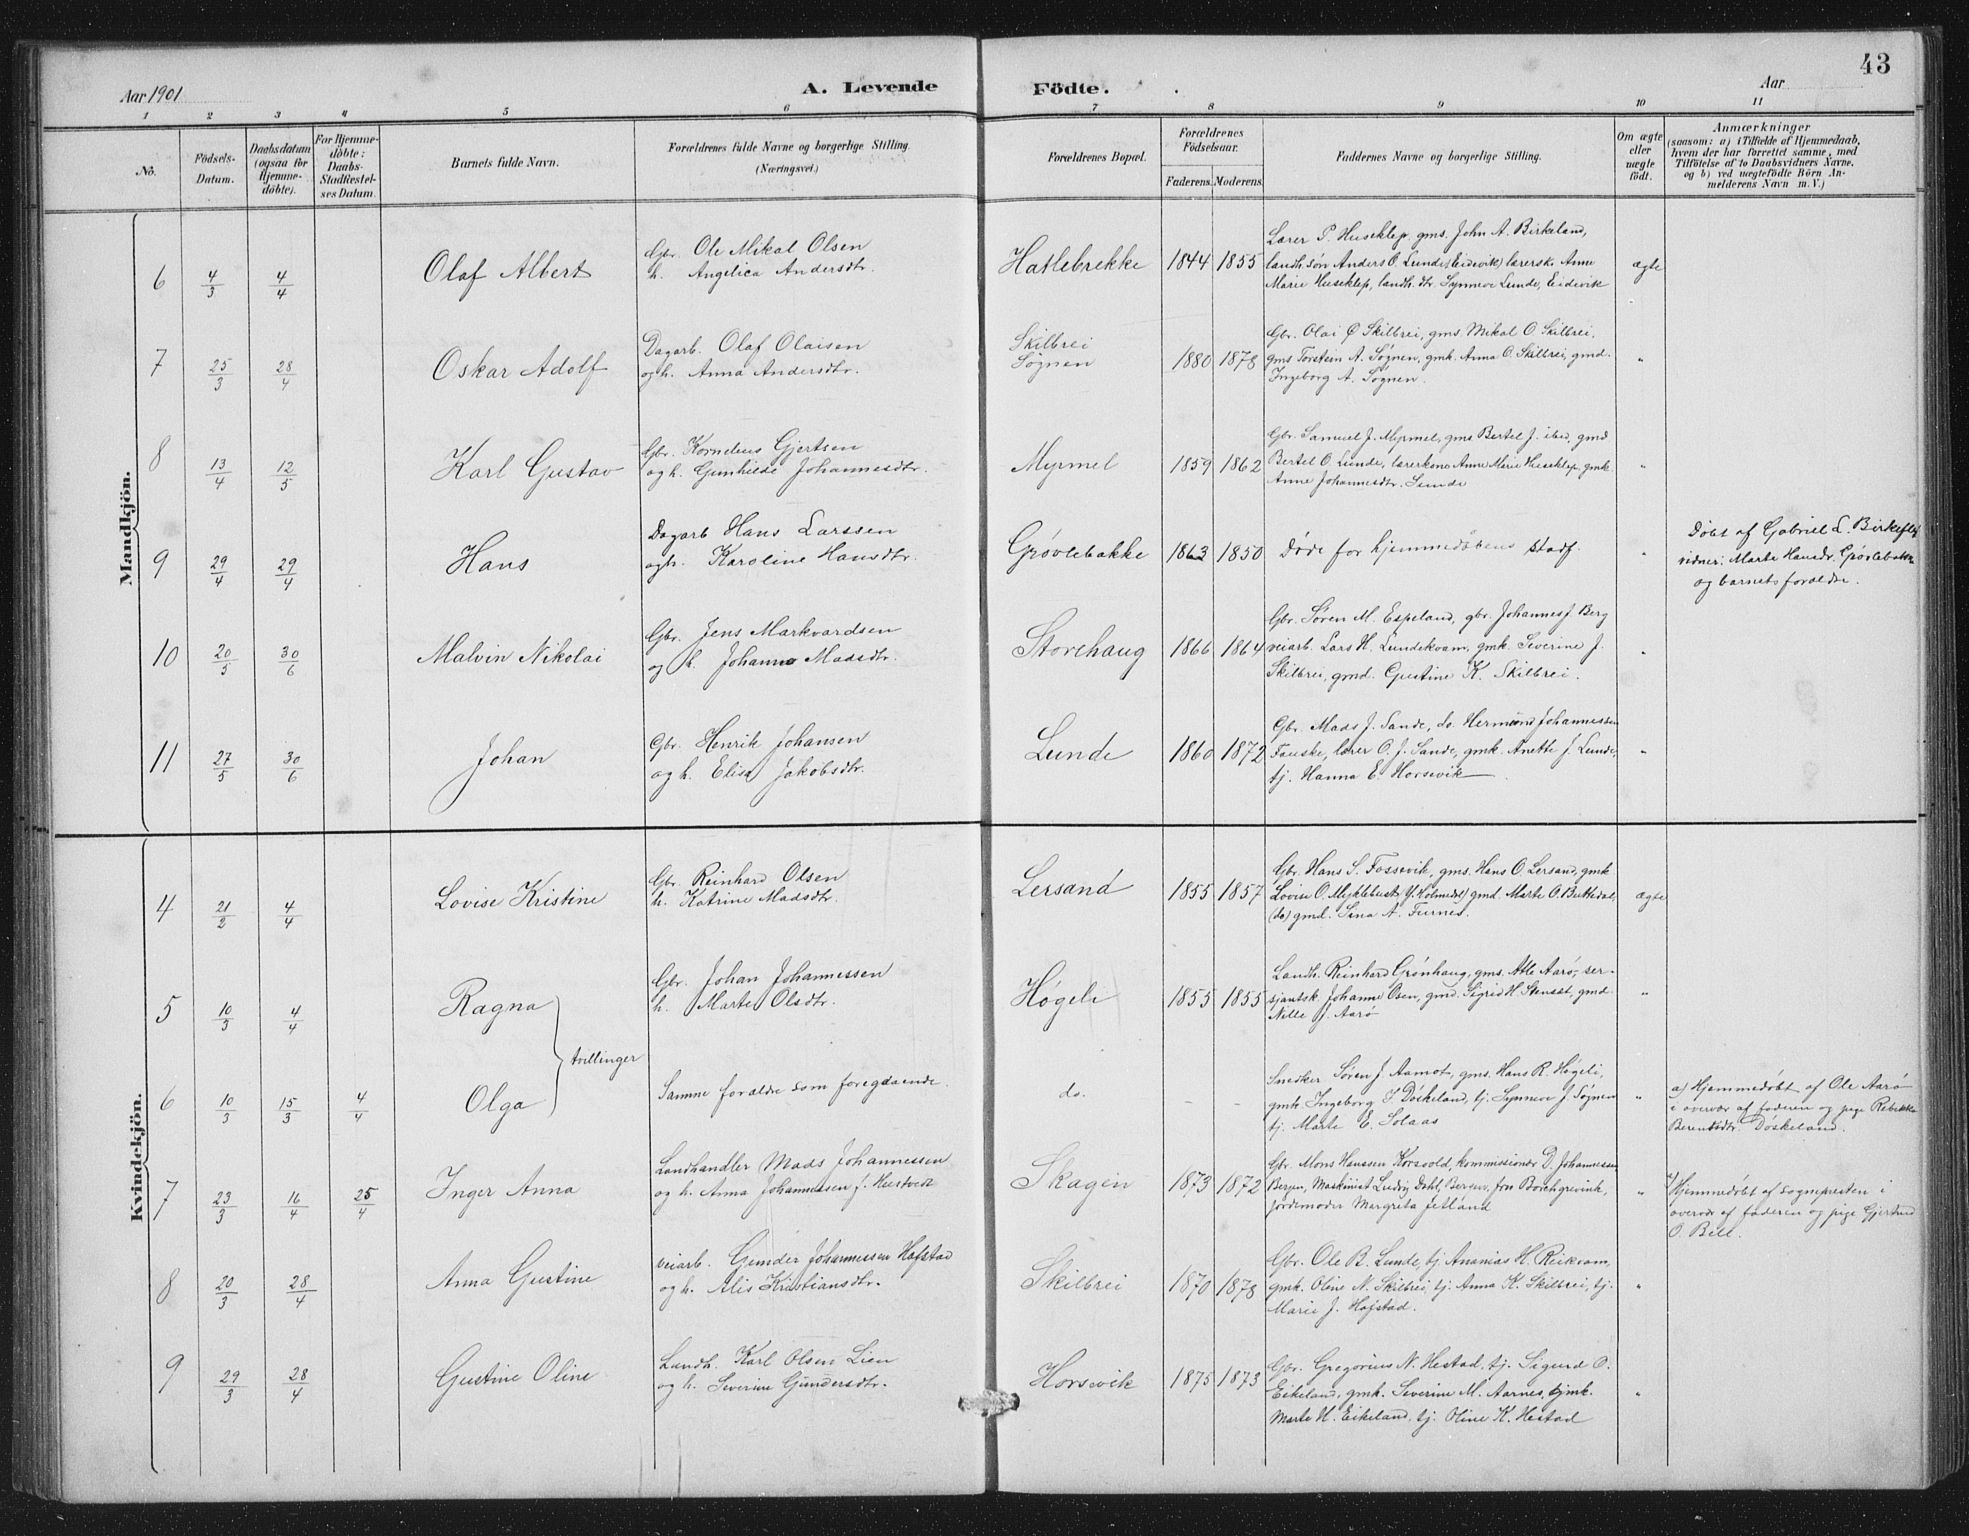 43
Aar 1901
A. Levende
Födte.
Aar
1 2 3 4 5 6 7 8 9 10 11
No.
Födsels-
Datum.
Daabsdatum
(ogsaa for
Hjemme-
döbte).
For Hjemme-
döbte:
Daabs-
Stadfæstel-
ses Datum.
Barnets fulde Navn.
Forældrenes fulde Navne og borgerlige Stilling.
(Næringsvei.)
Forældrenes Bopæl.
Forældrenes
Födselsaar.
Faderens. Moderens.
Faddernes Navne og borgerlige Stilling.
Om ægte
eller
uægte
födt.
Anmærkninger
(saasom: a) i Tilfælde af Hjemmedaab,
hvem der har forrettet samme, med
Tilföielse af to Daabsvidners Navne,
og b) ved uægtefödte Börn An-
melderens Navn m. V.)
Mandkjön.
6 4/3 4/4 Olaf Albert
Gbr. Ole Mikal Olsen
h. Angelica Andersdtr.
Hatlebrekke 1844 1855
Lærer P. Huseklep, gms. John A. Birkeland,
landh. søn Anders O. Lunde, Eidevik, lærersk. Anne
Marie Huseklep, landh. dtr. Synneve Lunde, Eidevik
ægte
7 25/3 28/4 Oskar Adolf
Dagarb. Olaf Olaisen
og h. Anna Andersdtr.
Skilbrei
Søgnen
1880 1878
Gbr. Olai O Skilbrei, gms Mikal O Skilbrei,
gms Torstein A. Søgnen, gmk. Anna O. Skilbrei, gmd.
Ingeborg A. Søgnen.
"
8 13/4 12/5 Karl Gustav
Gbr. Kornelius Gjertsen
og h. Gunhilde Johannesdtr.
Myrmel 1859 1862
Gbr. Samuel J. Myrmel, gms Bertel J. ibid, gmd
Bertel O. Lunde, lærerkone Anne Marie Huseklep, gmk.
Anne Johannesdtr. Lunde
"
9 29/4 29/4 Hans
Dagarb Hans Larssen
og h. Karoline Hansdtr.
Grøvlebakke 1863 1850
Døde før hjemmedåbens stadf.
"
Døbt af Gabriel L.
vidner: Marte Hansdr. Grøvlebakke
og barnets forældre.
10 20/5 30/6 Malvin Nikolai
Gbr. Jens Markvardsen
og h. Johanne Madsdtr.
Storehaug 1866 1864
Gbr. Søren M. Espeland, gbr. Johannes J. Berg
veiarb. Lars H. Lundekvam, gmk. Severine J.
Skilbrei, gmd. Gustine K. Skilbrei.
"
11 27/5 30/6 Johan
Gbr. Henrik Johansen
og h. Elisa Jakobsdtr.
Lunde 1860 1872
Gbr. Mads J. Sande, do. Hermund Johannessen
Fauske, lærer O. J. Sande, gmk. Anette J. Lunde,
tj. Hanna E. Horsevik
"
Kvindekjön.
4 21/2 4/4 Lovise Kristine
Gbr. Reinhard Olsen
h. Katrine Madsdtr.
Lersand 1855 1857
Gbr. Hans S. Fossevik, gms. Hans O Lersand, gmk
Lovise O. Myklebust, gmd. Marte O.
(do) gmd. Sina A. Furnes.
ægte
5 10/3 4/4 Ragna
tvillinger
Gbr. Johan Johannessen
h. Marte Olsdtr.
Høgeli 1855 1855
Landh. Reinhard Grønhaug, gms. Atle Aarø, ser-
sjantsk. Johanne Osen, gmd. Sigrid H. Stenset, gmd.
Nille J. Aarø
"
6 10/3 15/3 4/4 Olga
Samme forældre som foregaaende.
do.
- -
Snedker Søren J. Aamot, gms. Hans R. Høgeli,
gmk. Ingeborg S Døskeland, tj. Synneve J. Søgnen
tj. Marte E. Solaas
"
a) Hjemmedøbt af Ole Aarø
i overvær af faderen og pige Rebekka
Berentsdtr. Døskeland.
7 23/3 16/4 25/4 Inger Anna
Landhandler Mads Johannessen
og h. Anna Johannessen f. Hustvedt
Skagen 1873 1872
Gbr. Mons Hanssen Korsvold, kommissionær D. Johannessen
Bergen, Maskinist Ludvig Dahl, Bergen, fru Borchgrevink,
Jordemoder Margreta Jetland
"
Hjemmedøbt af sognepresten i
overvær af faderen og pige Gjertrud
O. Bell.
8 20/3 28/4 Anna Gustine
veiarb. Gunder Johannessen Hafstad
og h. Alis Kristiansdtr.
Skilbrei 1870 1878
Gbr. Ole B. Lunde, tj. Ananias H. Reikvam,
gmk. Oline N. Skilbrei, tj. Anna K. Skilbrei, tj.
Marie J. Hafstad.
"
9 29/3 28/4 Gustine Oline
Landh. Karl Olsen Lien
og h. Severine Gundersdtr.
Horsevik 1875 1873
Gbr. Gregorius N. Hestad, tj. Sigurd O.
Eikeland, gmk. Severine M. Aarnes, tjmk.
Marte H. Eikeland, tj. Oline K. Hestad
"